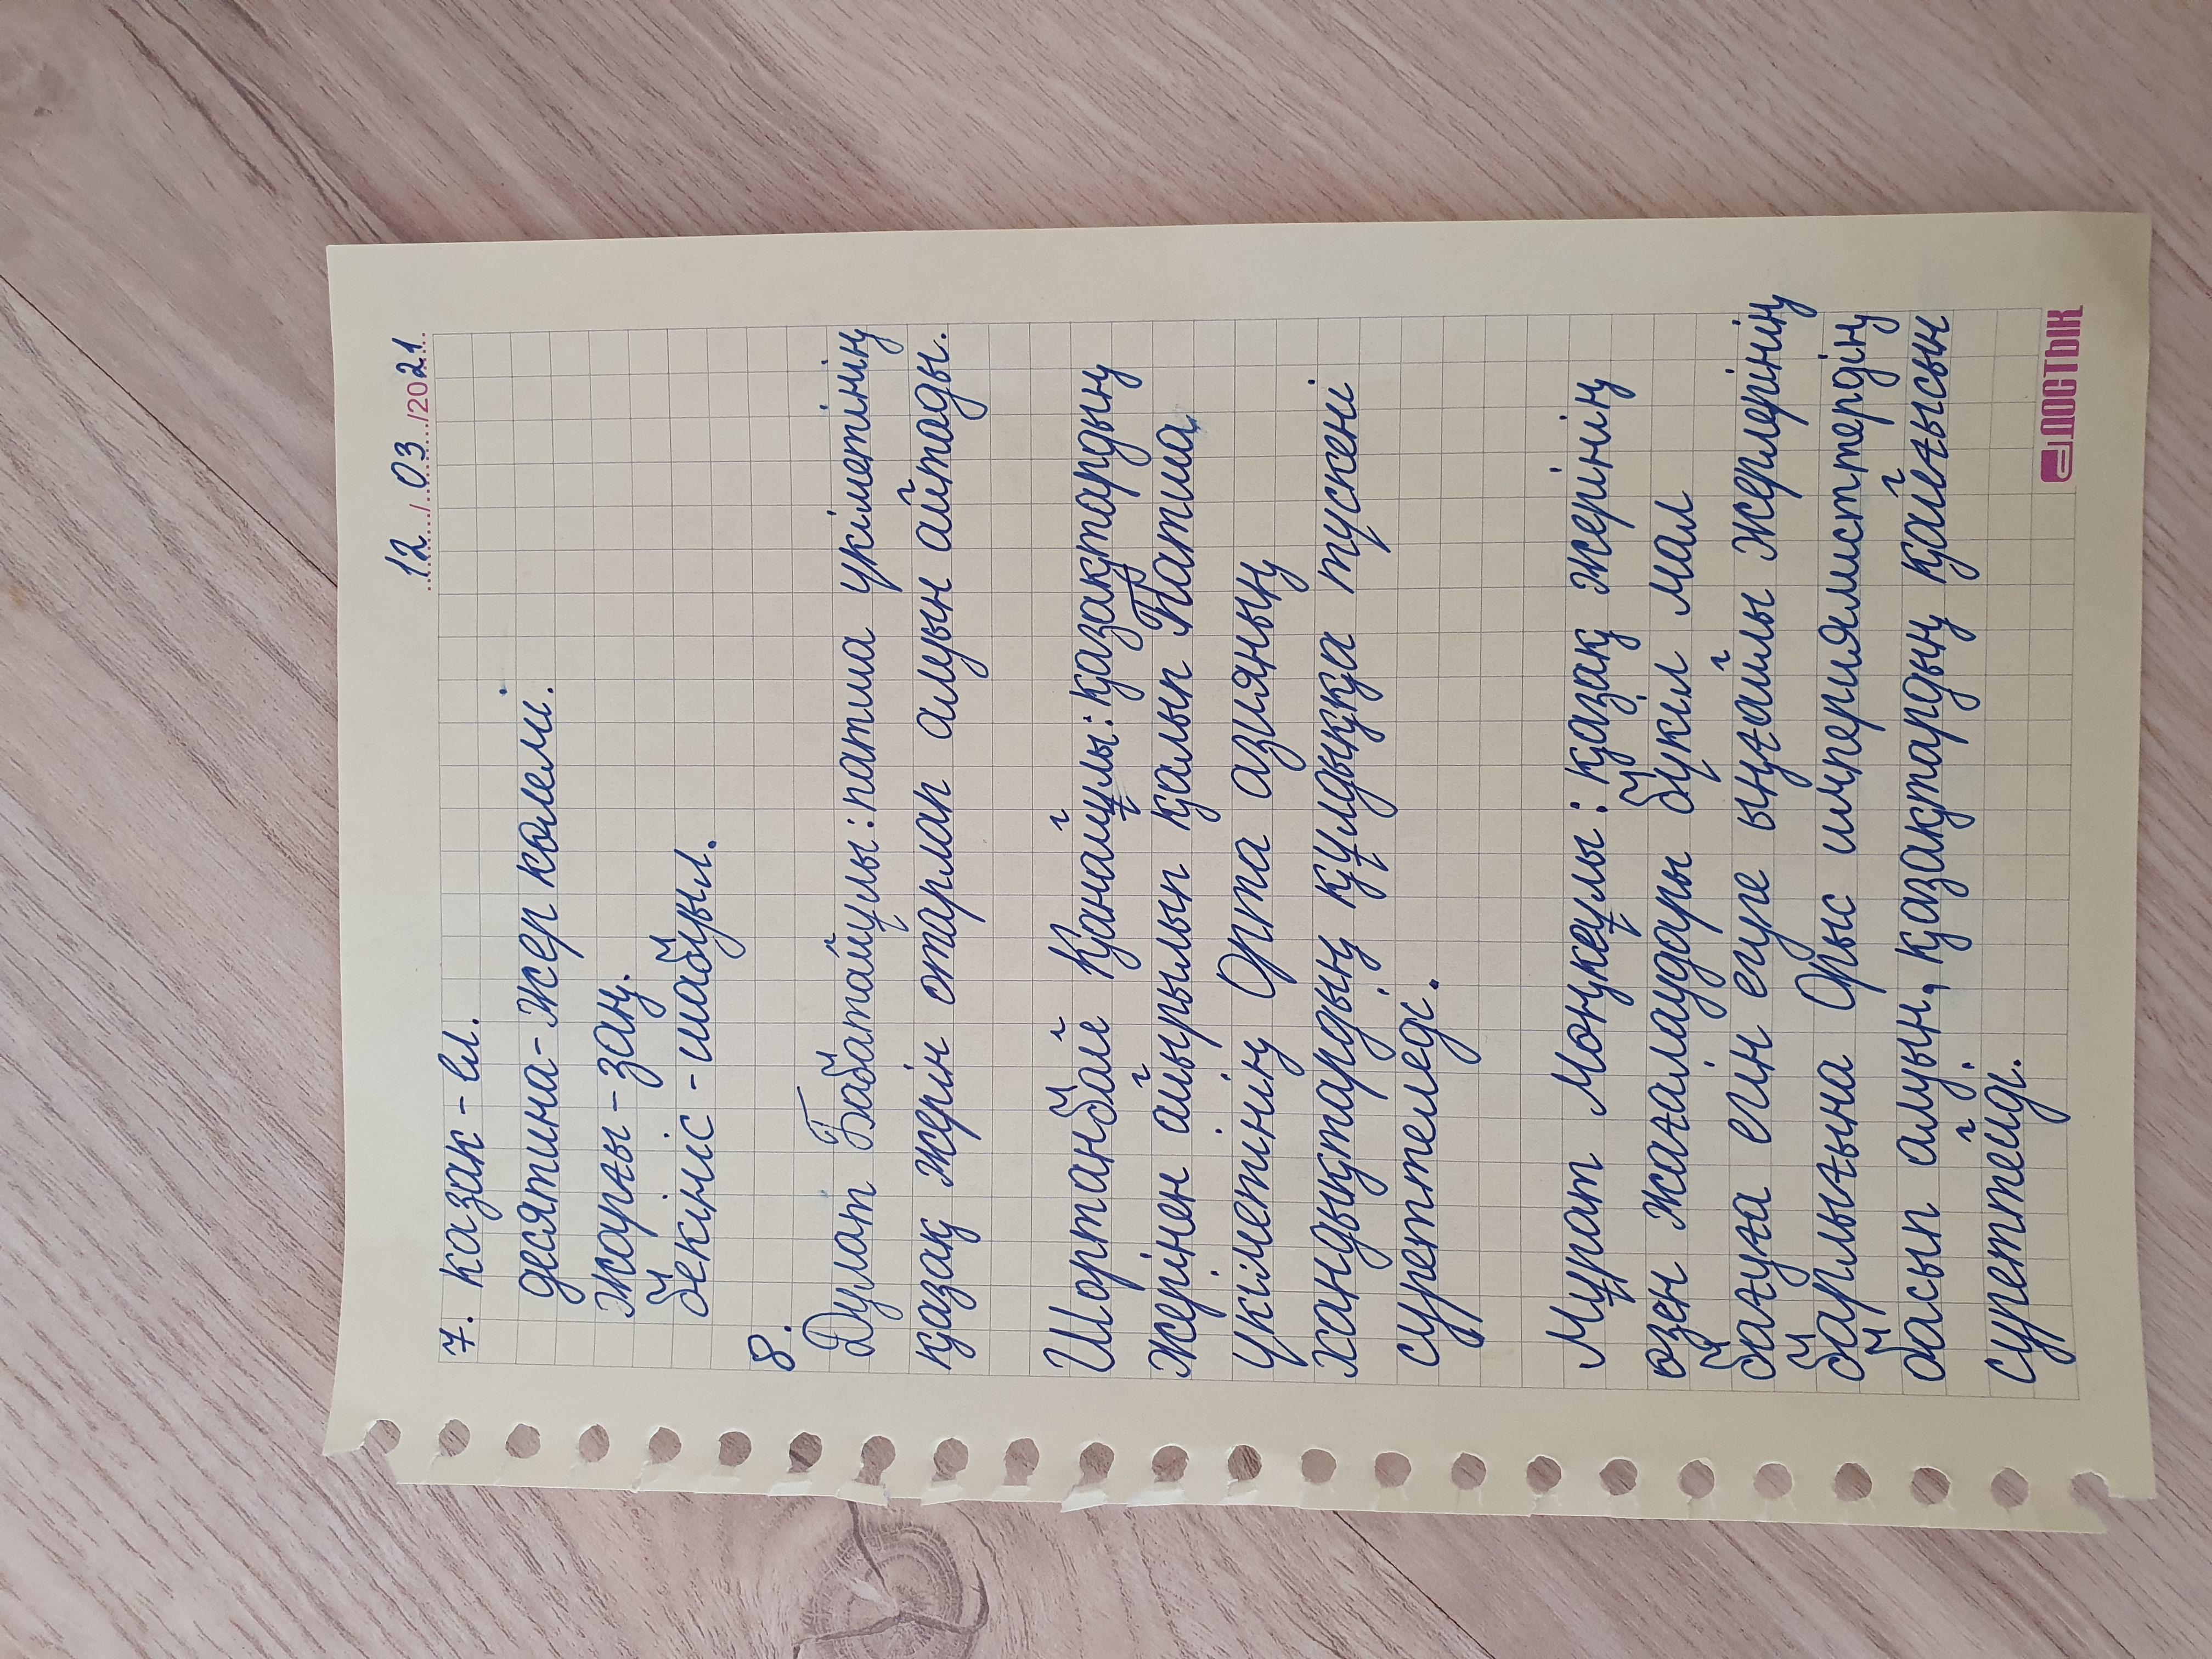 12 / 03 /2021
7. казак - ел.
десятина - жер көлемі.
Жарғы - заң.
бекініс - шабуыл.
8.
Дулат Бабатайұлы: патша үкіметінің
қазақ жерін отарлап алуын айтады.
Шортанбай Қанайұлы: қазақтардың
жерінен айырылып қалып Патша
үкіметінің Орта азияның
хандықтардың құлдыққа түскені
суреттеледі.
Мұрат Мөңкеұлы: қазақ жерінің
өзен жағалаудары бүкіл мал
бағуға егін егуге ыңғайлы жерлерінің
барлығына Орыс империялистердің
басып алуын, қазақтардың қайғысын
суреттейді.
ДОСТЫК